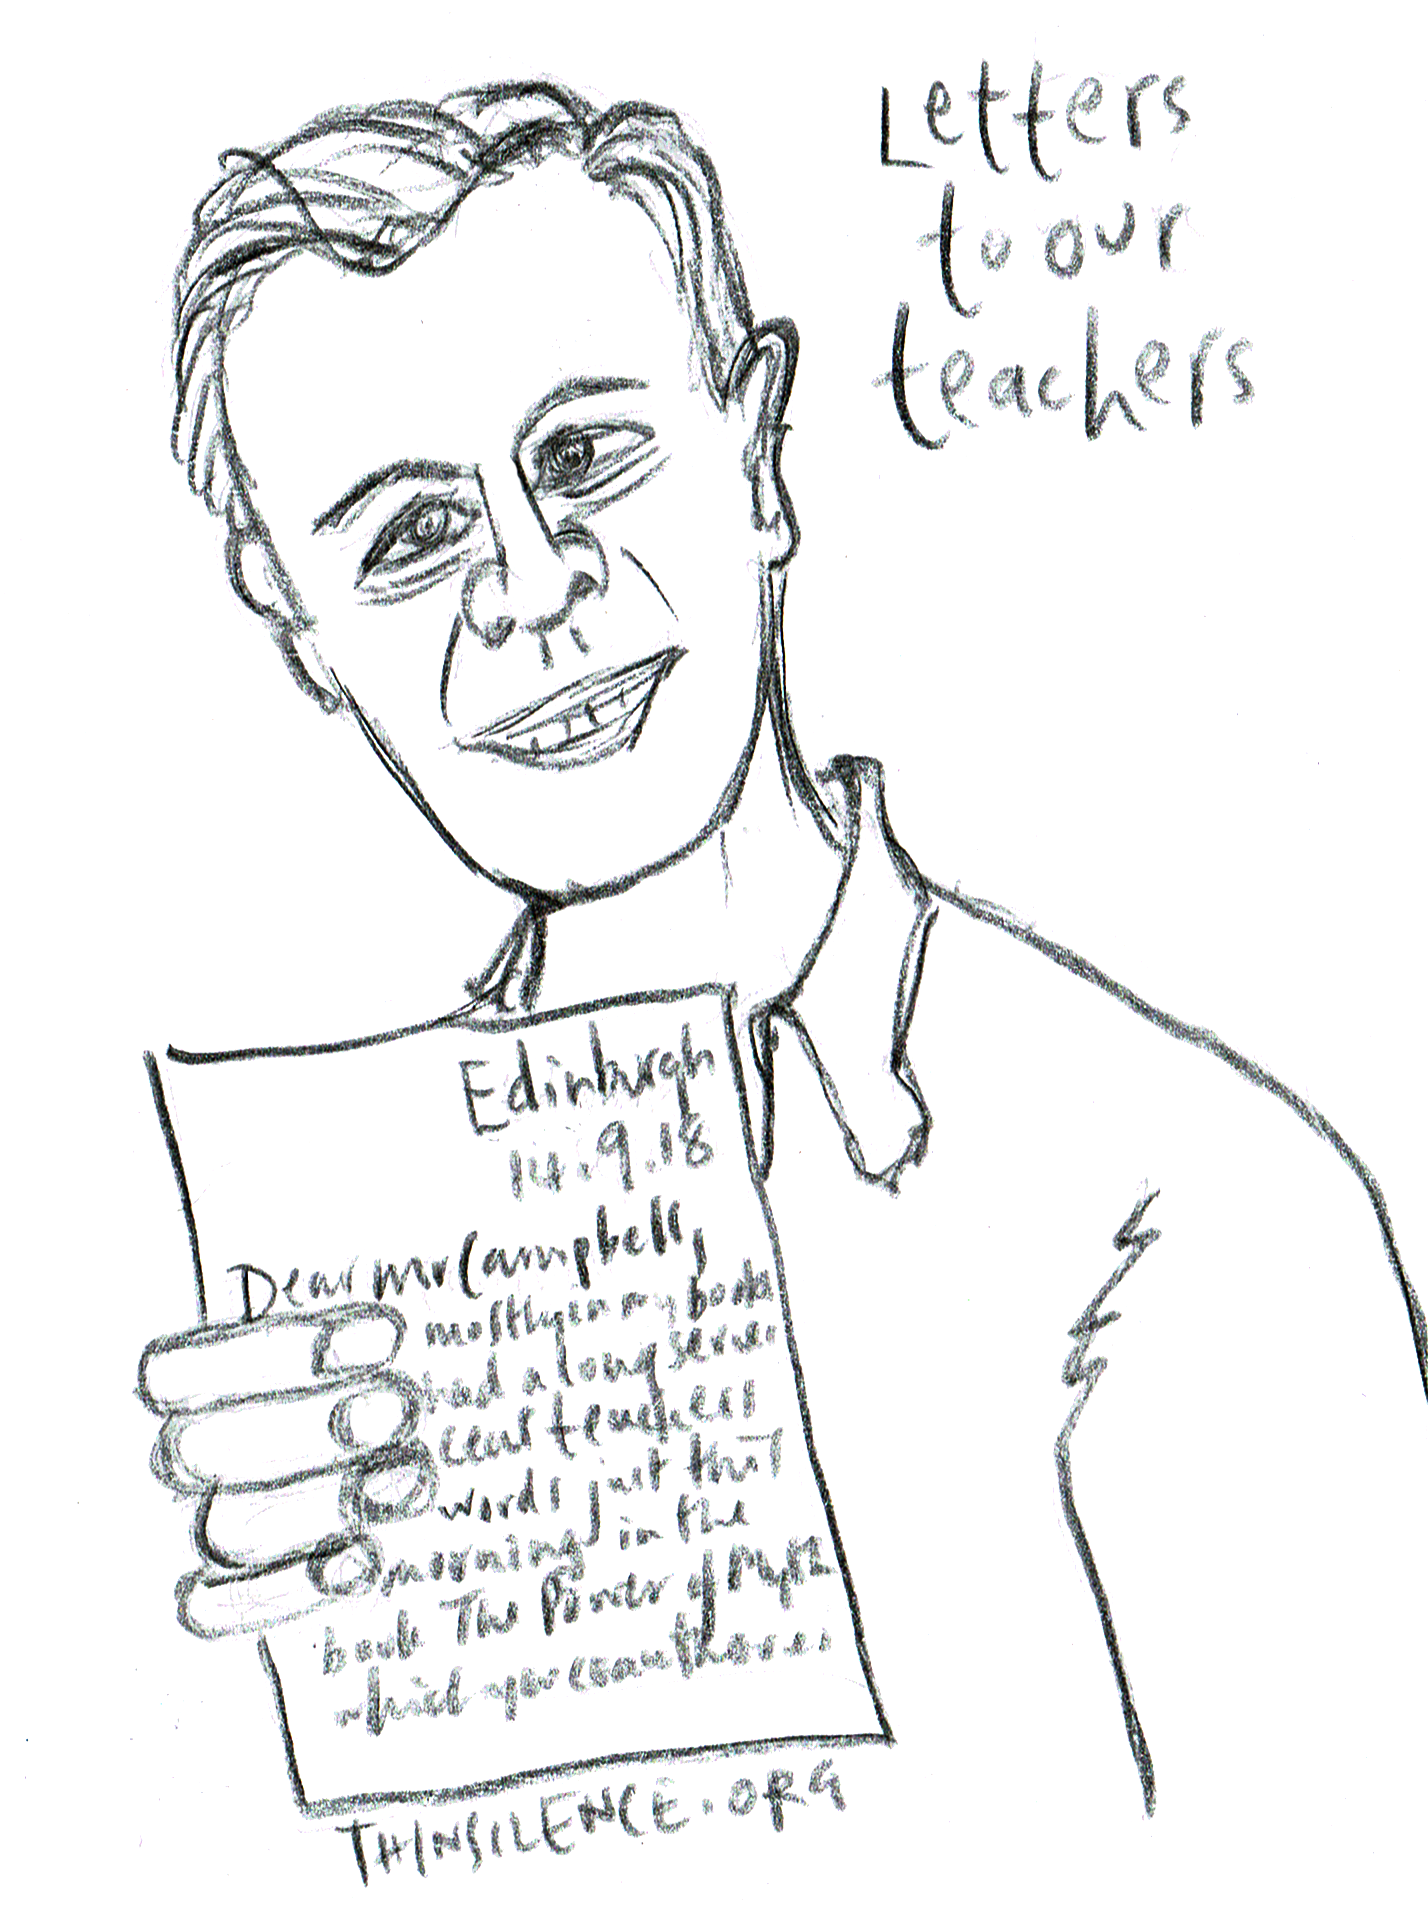 Letters
to our
teachers
Edinburgh
14.9.18
Dear Mr Campbell,
my book
had a long series
teachers
words just this
morning in the
book The Power of Myth
which you
THINSILENCE.ORG